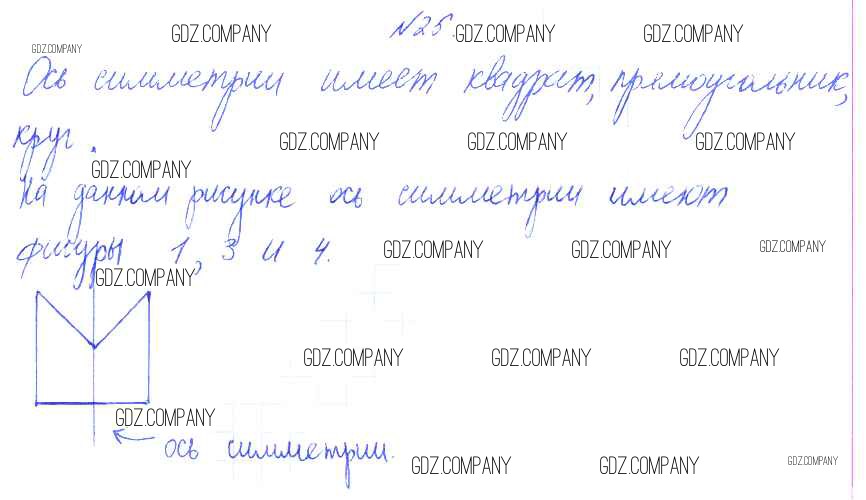 №25.
GDZ.COMPANY GDZ.COMPANY GDZ.COMPANY
GDZ.COMPANY
Ось симметрии имеет квадрат, прямоугольник,
круг.
GDZ.COMPANY GDZ.COMPANY GDZ.COMPANY
GDZ.COMPANY
На данном рисунке ось симметрии имеют
фигуры 1, 3 и 4.
GDZ.COMPANY GDZ.COMPANY GDZ.COMPANY
GDZ.COMPANY
GDZ.COMPANY GDZ.COMPANY GDZ.COMPANY
GDZ.COMPANY
ось симметрии.
GDZ.COMPANY GDZ.COMPANY GDZ.COMPANY